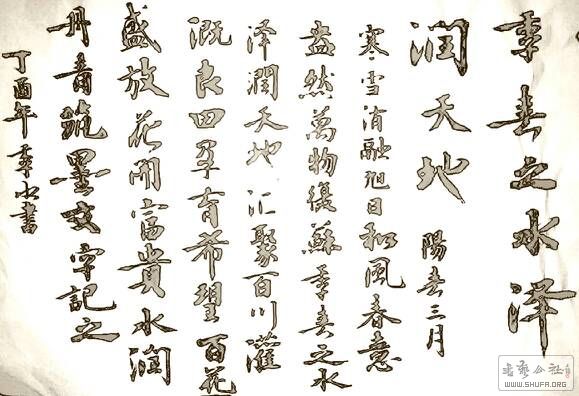 季春之水泽
润天地 陽春三月
寒雪消融旭日和風春意
盎然萬物復蘇季春之水
泽潤天地汇聚百川灌
溉良田孕育希望百花
盛放花開富貴水润
丹青墨文字記之
丁酉年季水書
书艺公社
WWW.SHUFA.ORG